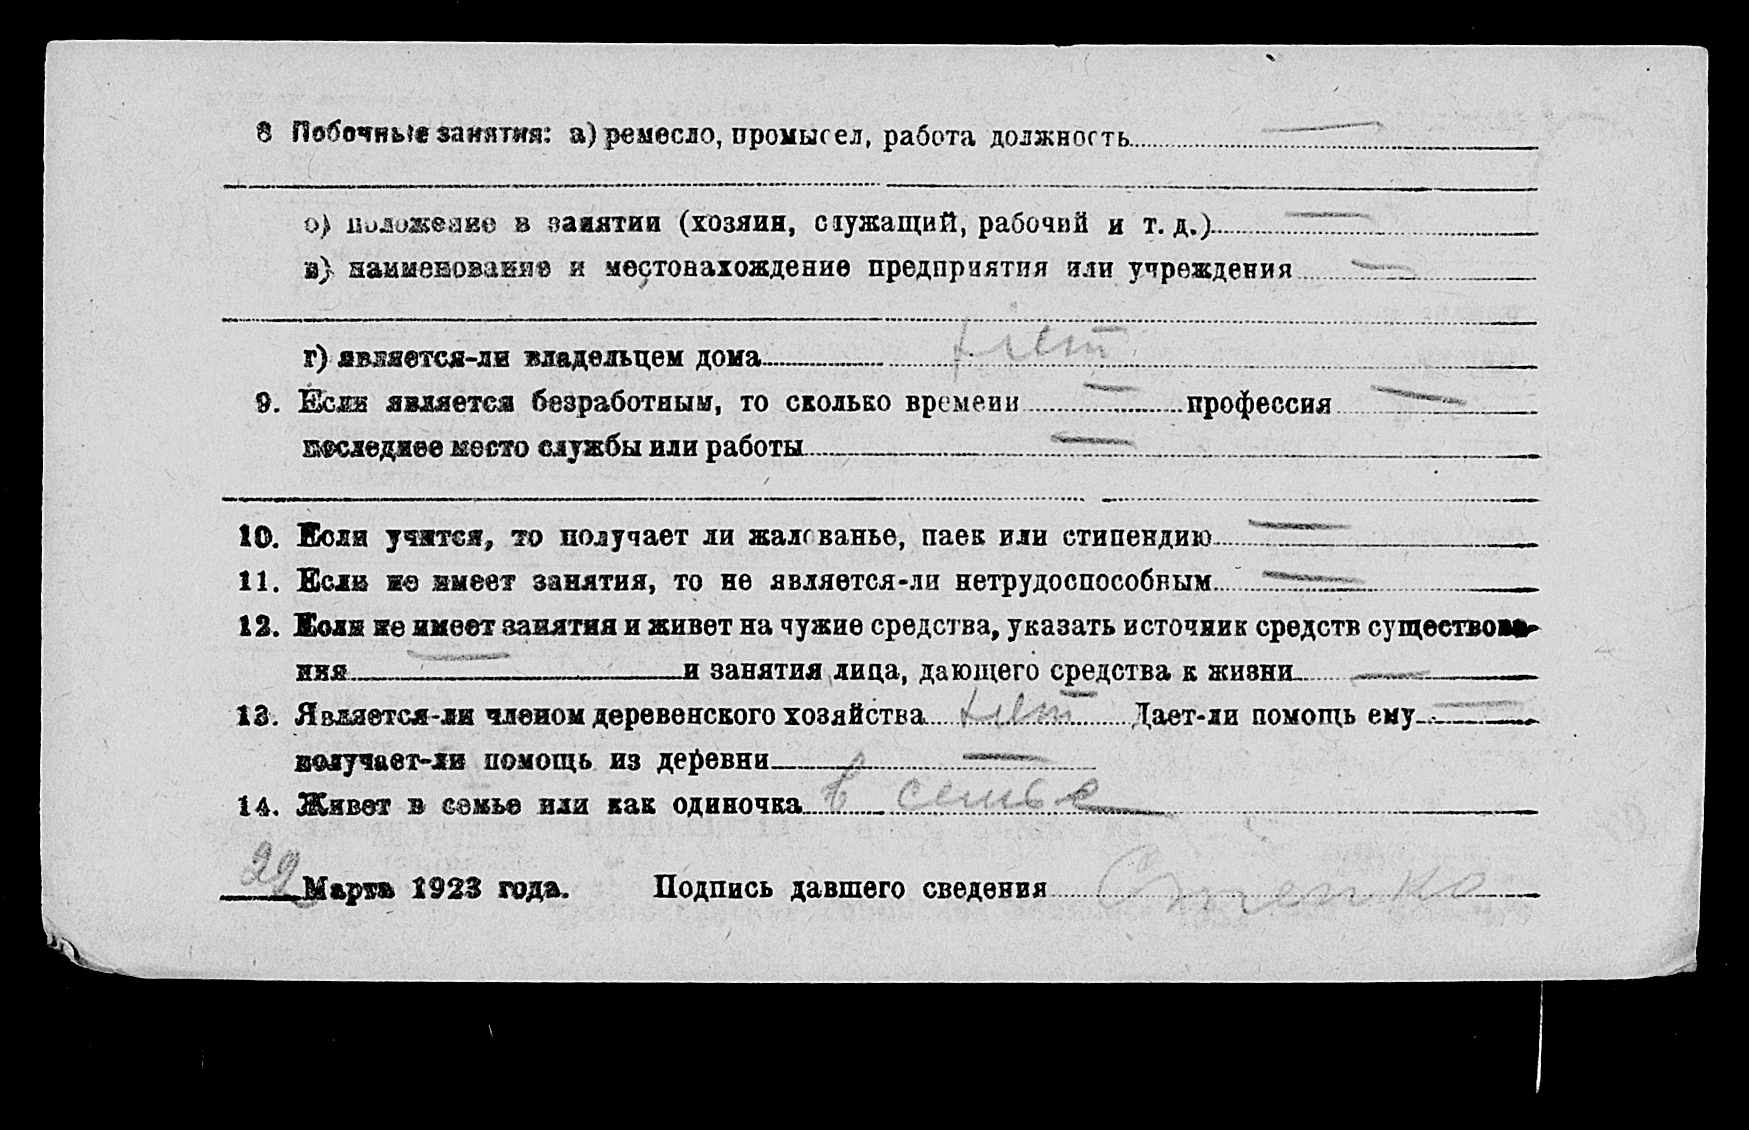 8 Побочные занятия: а) ремесло, промысел, работа должность —
б) положение в занятии (хозяин, служащий, рабочий и т. д.) —
в) наименование и местонахождение предприятия или учреждения —
г) является-ли владельцем дома нет
9. Если является безработным, то сколько времени — профессия —
последнее место службы или работы —
10. Если учится, то получает ли жалованье, паек или стипендию —
11. Если не имеет занятия, то не является-ли нетрудоспособным —
12. Если не имеет занятия и живет на чужие средства, указать источник средств существова-
ния — и занятия лица, дающего средства к жизни —
13. Является-ли членом деревенского хозяйства нет Дает-ли помощь ему —
получает-ли помощь из деревни —
14. Живет в семье или как одиночка в семье
29 Марта 1923 года. Подпись давшего сведения